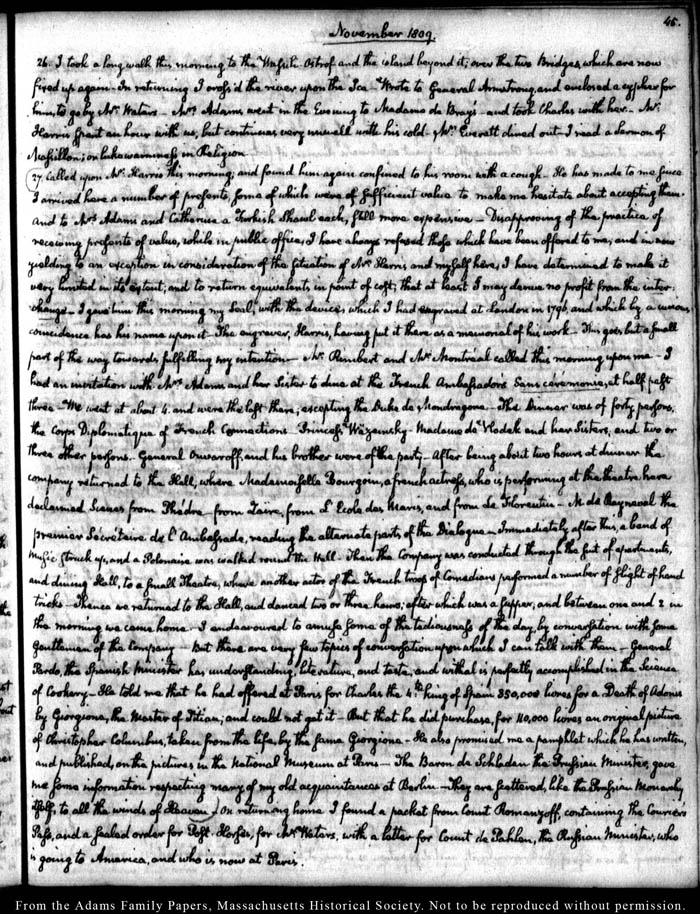 45.
November 1809.
26. I took a long walk this morning to the Wasili-Ostrof and the island beyond it; over the two Bridges, which are now
fixed up again. In returning I cross'd the river upon the Ice - Wrote to General Armstrong, and enclosed a cypher for
him, to go by Mr. Waters - Mrs. Adams, went in the Evening to Madame de Bray's - and took Charles with her. Mr.
Harris spent an hour with us, but continues very unwell with his cold. Mr. Everett dined out. I read a Sermon of
Massillon; on lukewarmness in Religion.
27. Called upon Mr. Harris this morning; and found him again confined to his room with a cough. He has made to me since
I arrived here a number of presents, some of which were of sufficient value to make me hesitate about accepting them.
And to Mrs. Adams and Catherine a Turkish Shawl each, still more expensive - Disapproving of the practice of
receiving presents of value, while in public office, I have always refused those which have been offered to me, and in now
yielding to an exception in consideration of the situation of Mr. Harris and myself here, I have determined to make it
very limited in its extent; and to return equivalents in point of cost; that at least I may derive no profit from the inter-
change - I gave him this morning my Seal, with the device, which I had engraved at London in 1796, and which by a curious
coincidence has his name upon it. The engraver, Harris, having put it there as a memorial of his work. This goes but a small
part of the way towards fulfilling my intention - Mr. Rimbert and Mr. Montréal called this morning upon me - I
had an invitation with Mrs. Adams and her Sister to dine at the French Ambassador's Sans cérémonie, at half past
three - We went at about 4. and were the last there; excepting the Duke de Mondragone - The Dinner was of forty persons,
the Corps Diplomatique of French Connections - Princess Wiazemsky - Madame de Vlodek and her Sisters, and two or
three other persons. General Ouvaroff, and his brother were of the party - After being about two hours at dinner the
company returned to the Hall, where Mademoiselle Bourgoin, a french actress, who is performing at the theatre here
declaimed Scenes from Phèdre - from Zaïre, from L'Ecole des Maris, and from Le Florentin - M. de Rayneval the
premier Sécrétaire de l'Ambassade, reading the alternate parts of the Dialogue - Immediately after this, a band of
music struck up, and a Polonaise was walked round the Hall - Then the Company was conducted through the suit of apartments,
and dining Hall, to a small Theatre, where another actor of the French troop of Comedians performed a number of slight of hand
tricks - Thence we returned to the Hall, and danced two or three hours; after which was a supper, and between one and 2 in
the morning we came home. I endeavoured to amuse some of the tediousness of the day, by conversation with some
Gentlemen of the Company - But there are very few topics of conversation upon which I can talk with them - General
Pardo, the Spanish Minister has understanding, literature, and taste, and withal is perfectly accomplished in the Science
of Cookery - He told me that he had offered at Paris for Charles the 4th. king of Spain 350,000 livres for a Death of Adonis
by Giorgione, the Master of Titian; and could not get it - But that he did purchase, for 110,000 livres an original picture
of Christopher Columbus, taken from the life, by the same Giorgione - He also promised me a pamphlet which he has written,
and published, on the pictures in the National Museum at Paris - The Baron de Schladen the Prussian Minister, gave
me some information respecting many of my old acquaintances at Berlin - They are scattered, like the Prussian Monarchy
itself, to all the winds of Heaven. On returning home I found a packet from Count Romanzoff, containing the Courier's
Pass, and a sealed order for Post-Horses, for Mr. Waters, with a letter for Count de Pahlen, the Russian Minister, who
is going to America, and who is now at Paris.
From the Adams Family Papers, Massachusetts Historical Society. Not to be reproduced without permission.